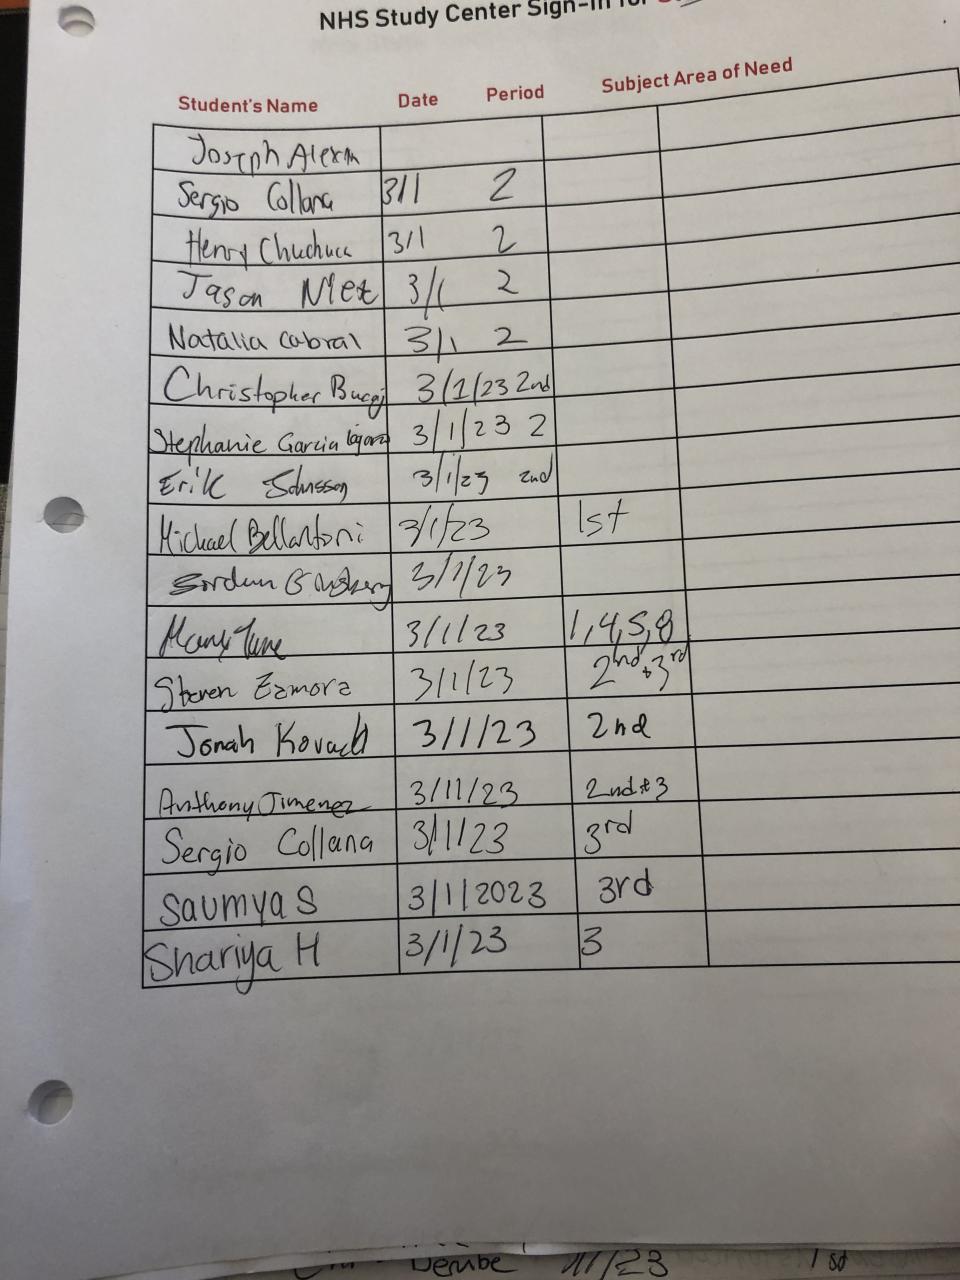 NHS Study Center Sign-In for
Student's Name Date Period Subject Area of Need
Joseph
Sergio Collana 3/1 2
Henry 3/1 2
Jason 3/1 2
Natalia Cabral 3/1 2
Christopher 3/1/23 2nd
Stephanie Garcia 3/1/23 2
Erik 3/1/23 2nd
Michael Bellantoni 3/1/23 1st
3/1/23
3/1/23 1,4,5,8
Steven Zamora 3/1/23 2nd + 3rd
Jonah 3/1/23 2nd
Anthony Jimenez 3/1/23 2nd + 3
Sergio Collana 3/1/23 3rd
Saumya S 3/1/2023 3rd
Shariya H 3/1/23 3
1st